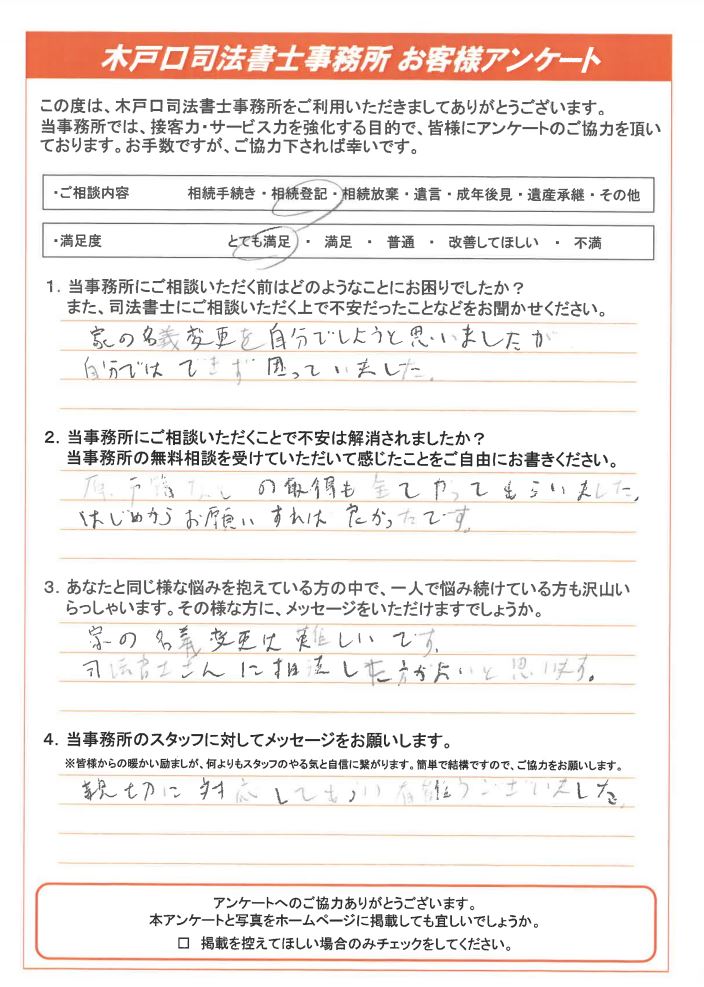 木戸口司法書士事務所 お客様アンケート
この度は、木戸口司法書士事務所をご利用いただきましてありがとうございます。
当事務所では、接客力・サービス力を強化する目的で、皆様にアンケートのご協力を頂い
ております。お手数ですが、ご協力下されば幸いです。
・ご相談内容 相続手続き・相続登記・相続放棄・遺言・成年後見・遺産承継・その他
・満足度 とても満足 ・ 満足 ・ 普通 ・ 改善してほしい ・ 不満
1. 当事務所にご相談いただく前はどのようなことにお困りでしたか?
また、司法書士にご相談いただく上で不安だったことなどをお聞かせください。
家の名義変更を自分でしようと思いましたが
自分ではできず 困っていました。
2. 当事務所にご相談いただくことで不安は解消されましたか?
当事務所の無料相談を受けていただいて感じたことをご自由にお書きください。
の取得も全てやってもらいました。
はじめからお願いすれば良かったです。
3. あなたと同じ様な悩みを抱えている方の中で、一人で悩み続けている方も沢山い
らっしゃいます。その様な方に、メッセージをいただけますでしょうか。
家の名義変更は難しいです。
司法書士さんに相談した方がよいと思います。
4. 当事務所のスタッフに対してメッセージをお願いします。
※皆様からの暖かい励ましが、何よりもスタッフのやる気と自信に繋がります。簡単で結構ですので、ご協力をお願いします。
親切に対応してもらい有難うございました。
アンケートへのご協力ありがとうございます。
本アンケートと写真をホームページに掲載しても宜しいでしょうか。
□ 掲載を控えてほしい場合のみチェックをしてください。